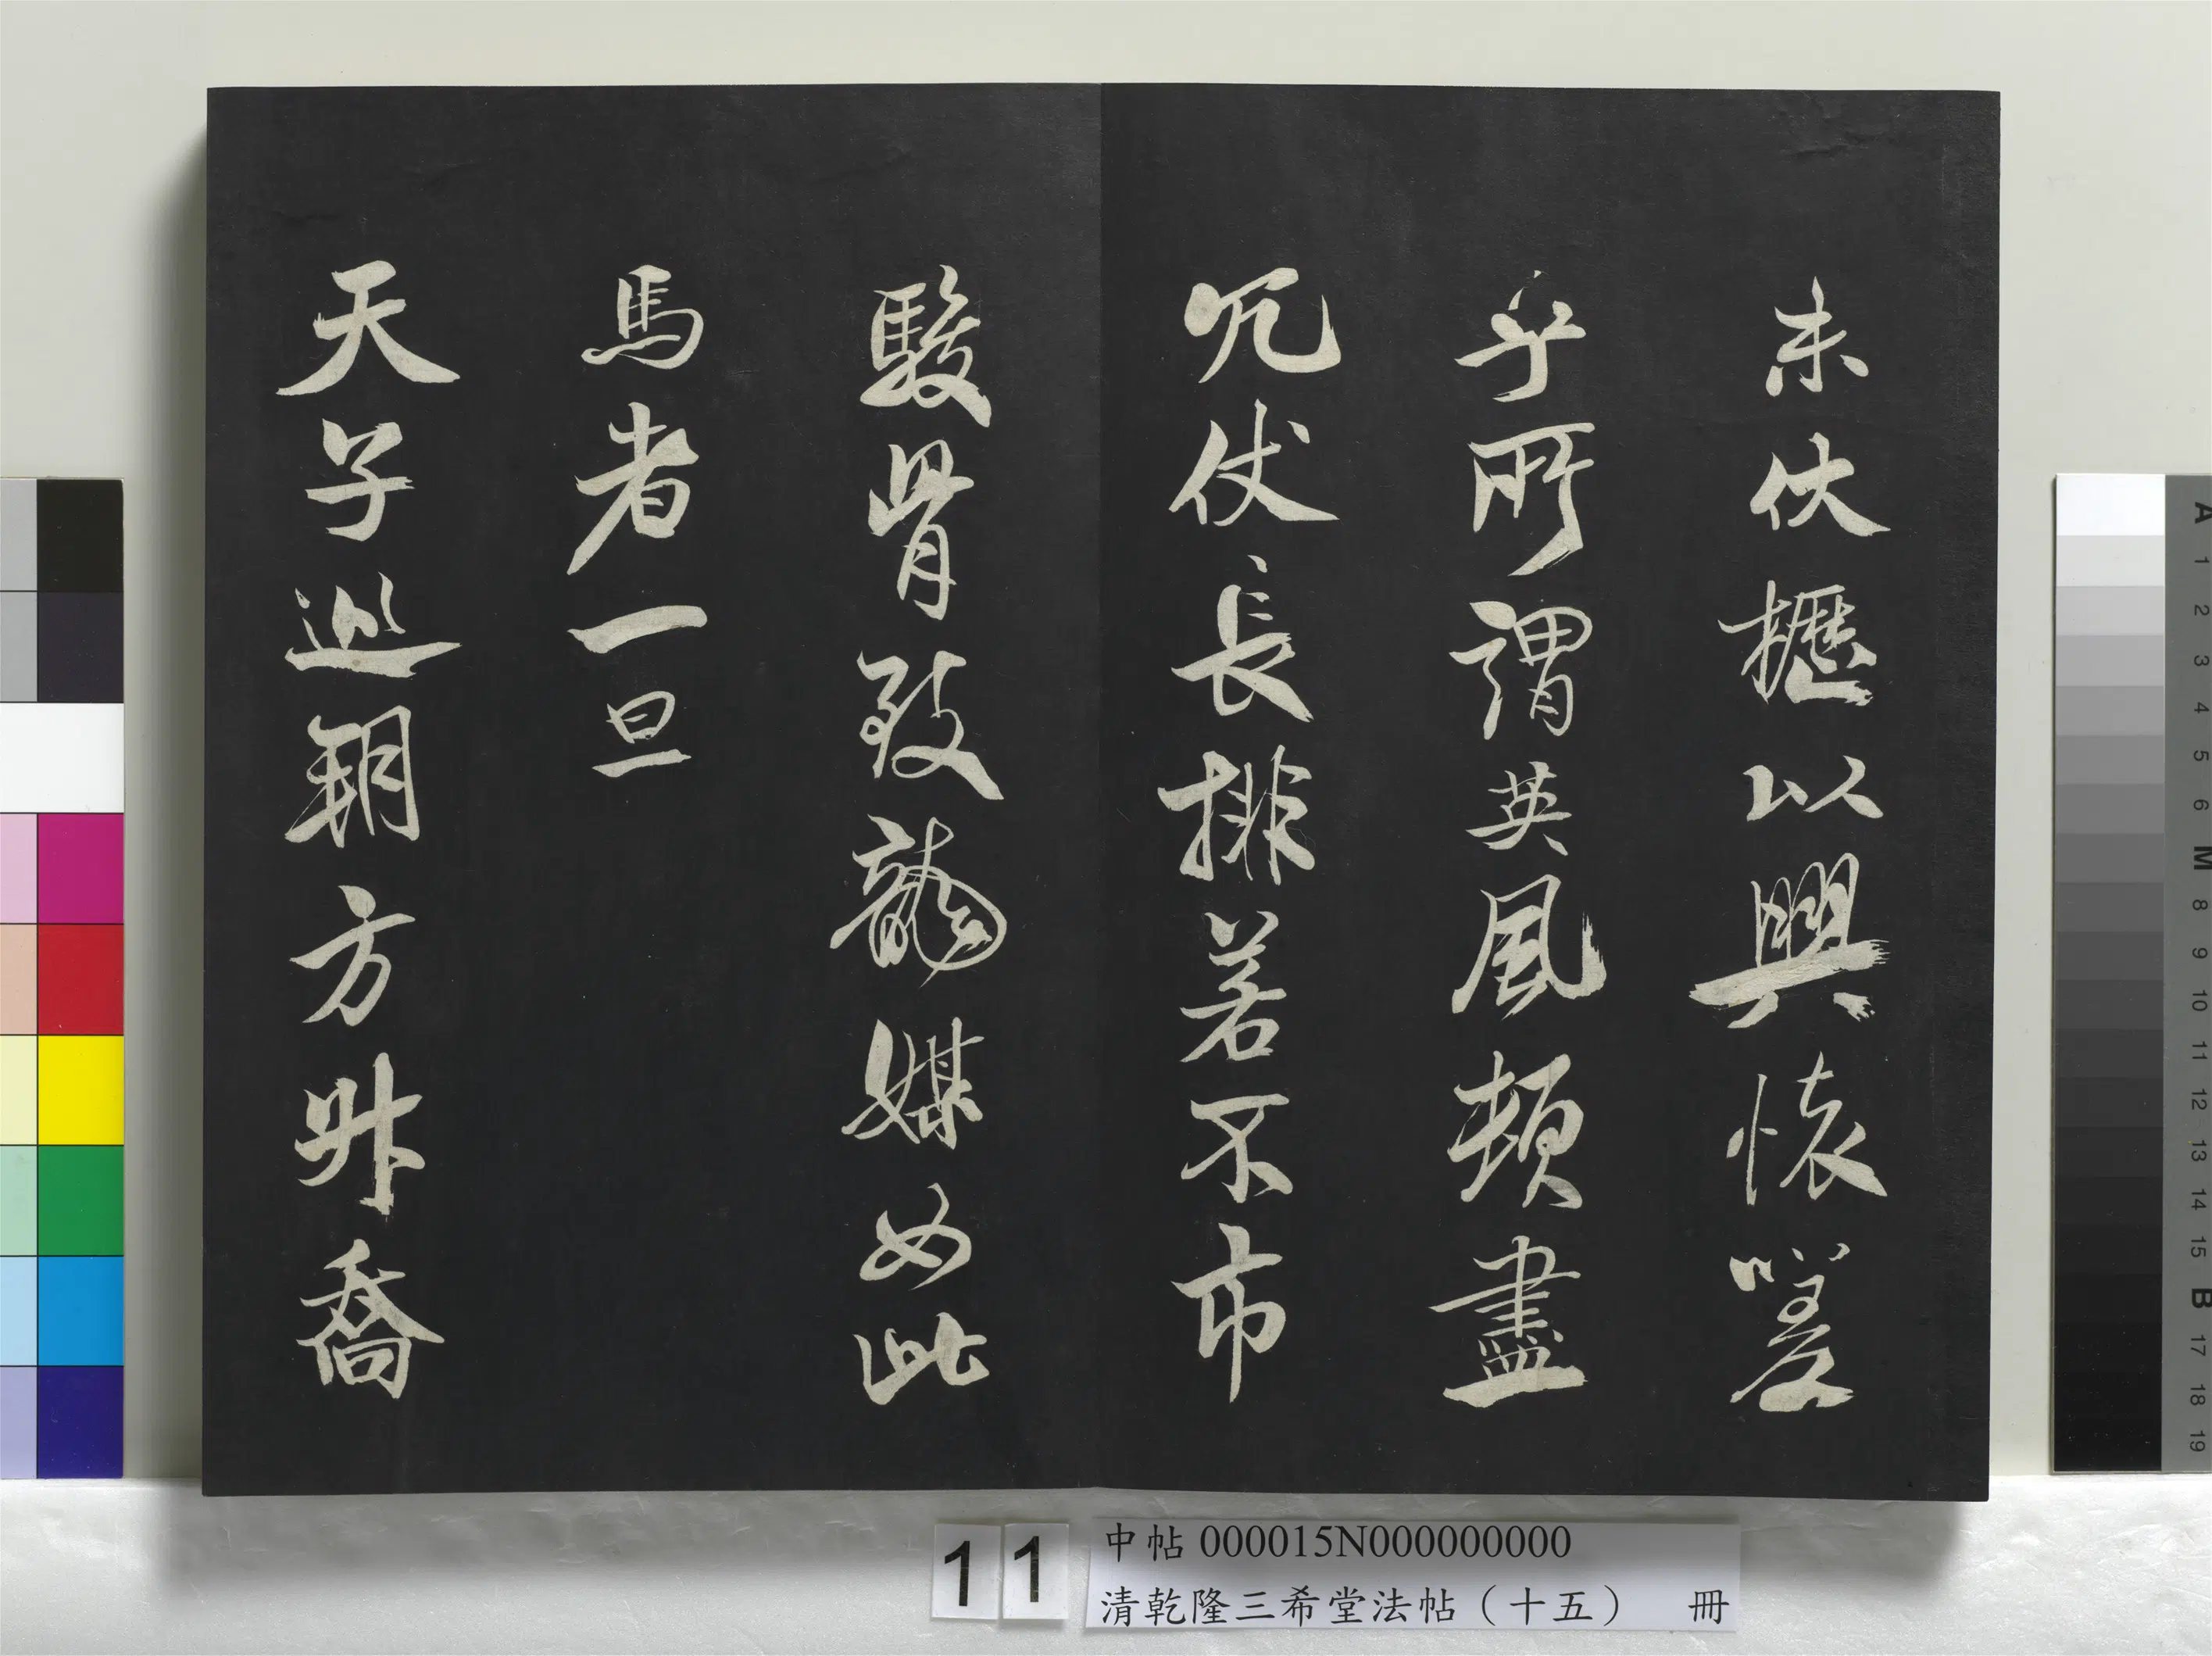 未伏櫪以興懷嗟
乎所謂英風頓盡
冗仗長排若不市
駿骨致龍媒如此
馬者一旦
天子巡朔方升喬
11
中帖 000015N000000000
清乾隆三希堂法帖（十五） 冊
A 1 2 3 4 5 6 M 8 9 10 11 12 13 14 15 B 17 18 19